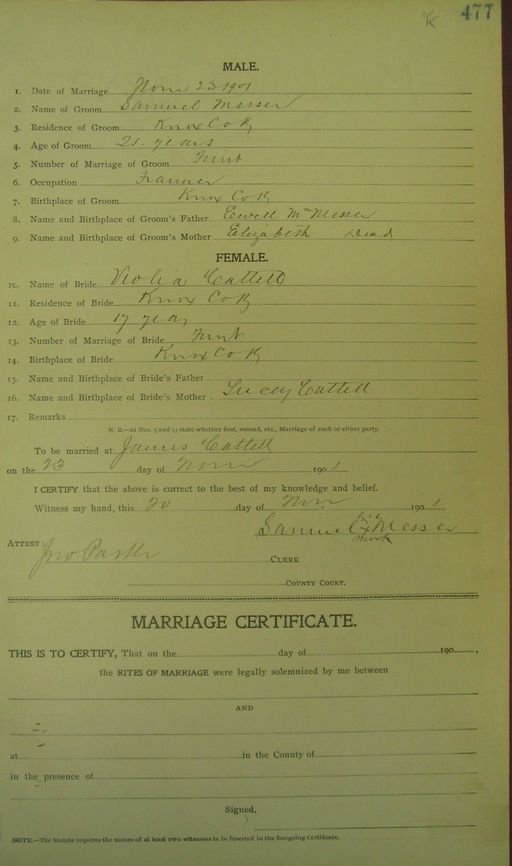 477
MALE.
1. Date of Marriage Nov 23 1901
2. Name of Groom Samuel Messer
3. Residence of Groom Knox Co Ky
4. Age of Groom 21 years
5. Number of Marriage of Groom First
6. Occupation Farmer
7. Birthplace of Groom Knox Co Ky
8. Name and Birthplace of Groom's Father Ewell Messer
9. Name and Birthplace of Groom's Mother Elizabeth Dead
FEMALE.
10. Name of Bride Cattell
11. Residence of Bride Knox Co Ky
12. Age of Bride 17 years
13. Number of Marriage of Bride First
14. Birthplace of Bride Knox Co Ky
15. Name and Birthplace of Bride's Father
16. Name and Birthplace of Bride's Mother Lucey Cattell
17. Remarks
N. B.—At Nos. 5 and 13 state whether first, second, etc., Marriage of each or either party.
To be married at James Cattell
on the 23 day of Nov 1901
I CERTIFY that the above is correct to the best of my knowledge and belief.
Witness my hand, this 20 day of Nov 1901
Samuel his x mark Messer
ATTEST: CLERK
COUNTY COURT.
MARRIAGE CERTIFICATE.
THIS IS TO CERTIFY, That on the day of 190 ,
the RITES OF MARRIAGE were legally solemnized by me between
AND
at in the County of
in the presence of
Signed,
NOTE.—The Statute requires the names of at least two witnesses to be inserted in the foregoing Certificate.